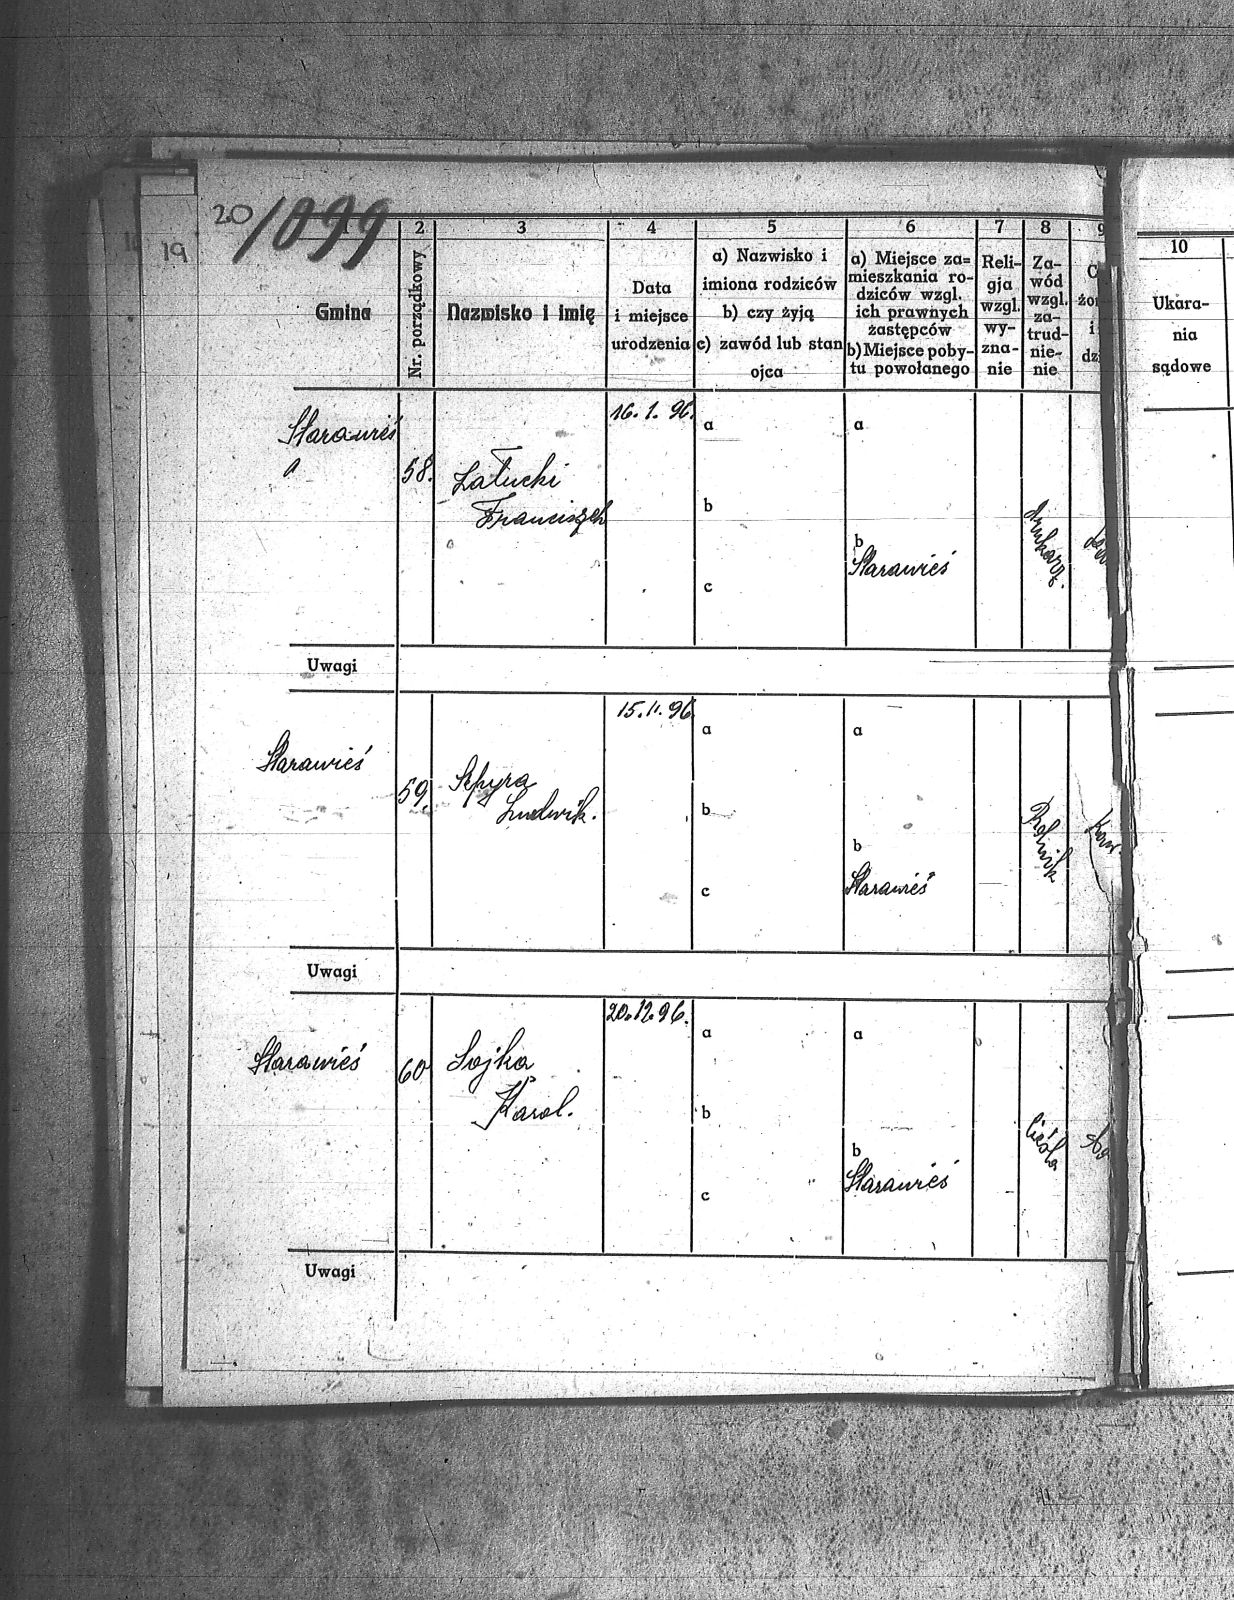 20/1899
19
1
2
3
4
5
6
7
8
9
10
Gmina
Nr. porządkowy
Nazwisko i imię
Data
i miejsce
urodzenia
a) Nazwisko i
imiona rodziców
b) czy żyją
c) zawód lub stan
ojca
a) Miejsce za=
mieszkania ro-
dziców wzgl.
ich prawnych
zastępców
b) Miejsce poby-
tu powołanego
Reli-
gja
wzgl.
wy-
zna-
nie
Za-
wód
wzgl.
za-
trud-
nie-
nie
Ukara-
nia
sądowe
Starawieś
58.
Załucki
Franciszek
16. 1. 96.
a
b
c
a
b
Starawieś
drukarz.
Uwagi
Starawieś
59.
Szpyra
Ludwik.
15. 11. 96
a
b
c
a
b
Starawieś
Rolnik
Kaw.
Uwagi
Starawieś
60
Sojka
Karol.
20. 12. 96.
a
b
c
a
b
Starawieś
Cieśla
Uwagi